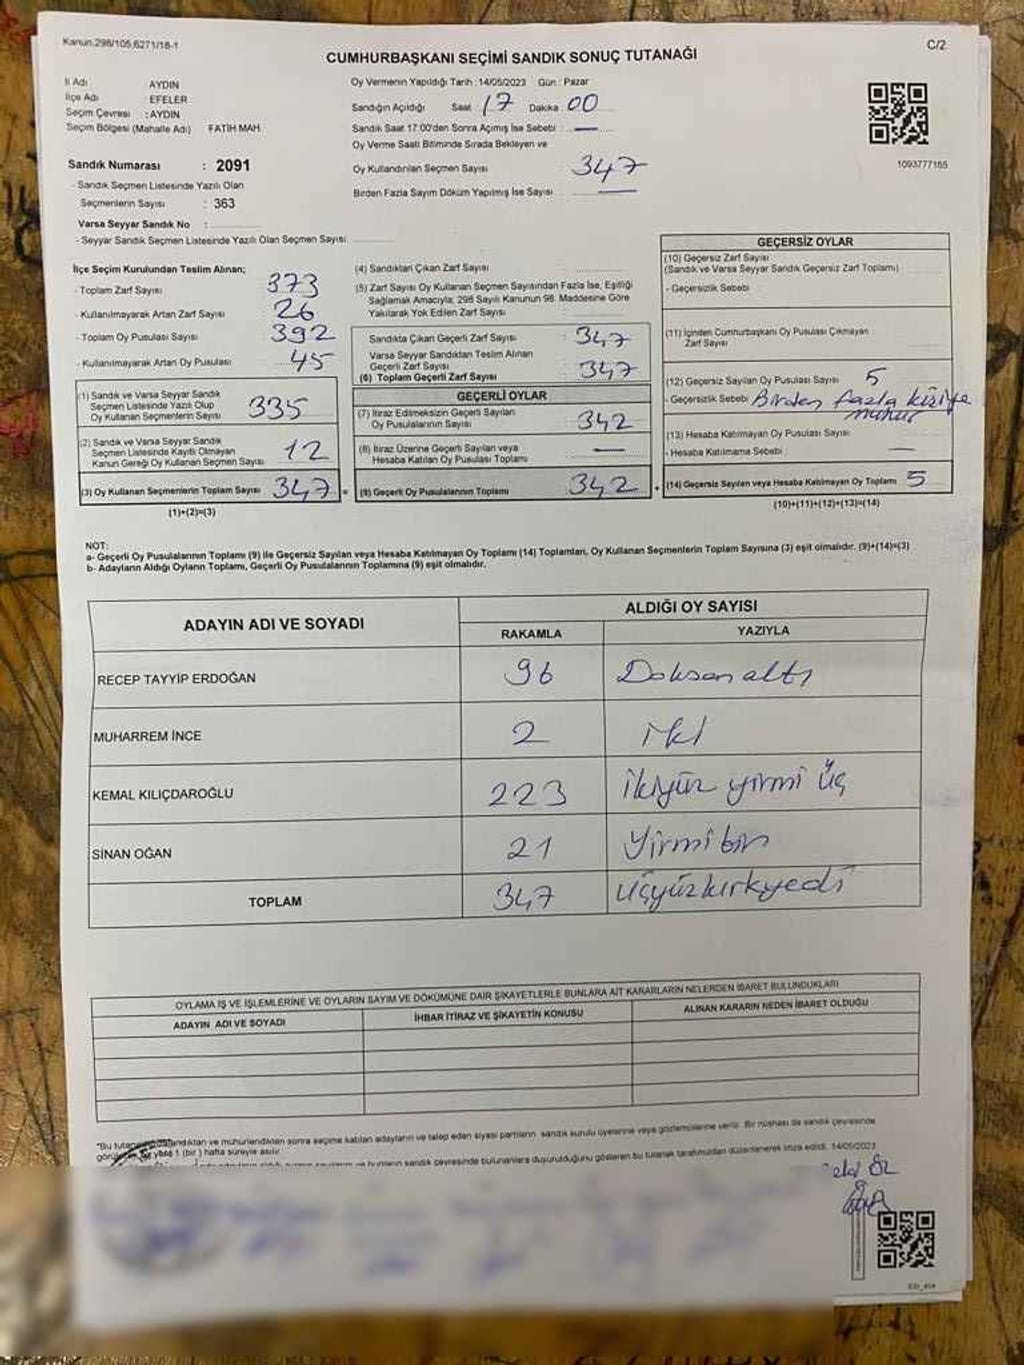 Kanun:298/105,6271/18-1
C/2
CUMHURBAŞKANI SEÇİMİ SANDIK SONUÇ TUTANAĞI
İl Adı AYDIN
İlçe Adı : EFELER
Seçim Çevresi : AYDIN
Seçim Bölgesi (Mahalle Adı) FATİH MAH.
Sandık Numarası : 2091
- Sandık Seçmen Listesinde Yazılı Olan
Seçmenlerin Sayısı : 363
Varsa Seyyar Sandık No :
- Seyyar Sandık Seçmen Listesinde Yazılı Olan Seçmen Sayısı
Oy Vermenin Yapıldığı Tarih : 14/05/2023 Gün : Pazar
Sandığın Açıldığı Saat 17 Dakika 00
Sandık Saat 17:00'den Sonra Açımış İse Sebebi : —
Oy Verme Saati Bitiminde Sırada Bekleyen ve
Oy Kullandırılan Seçmen Sayısı 347
Birden Fazla Sayım Döküm Yapılmış İse Sayısı —
1093777165
İlçe Seçim Kurulundan Teslim Alınan;
- Toplam Zarf Sayısı 373
- Kullanılmayarak Artan Zarf Sayısı 26
- Toplam Oy Pusulası Sayısı 392
- Kullanılmayarak Artan Oy Pusulası 45
(1) Sandık ve Varsa Seyyar Sandık
Seçmen Listesinde Yazılı Olup
Oy Kullanan Seçmenlerin Sayısı 335
(2) Sandık ve Varsa Seyyar Sandık
Seçmen Listesinde Kayıtlı Olmayan
Kanun Gereği Oy Kullanan Seçmen Sayısı 12
(3) Oy Kullanan Seçmenlerin Toplam Sayısı 347 =
(1)+(2)=(3)
(4) Sandıktan Çıkan Zarf Sayısı
(5) Zarf Sayısı Oy Kullanan Seçmen Sayısından Fazla İse, Eşitliği
Sağlamak Amacıyla, 298 Sayılı Kanunun 98. Maddesine Göre
Yakılarak Yok Edilen Zarf Sayısı
Sandıkta Çıkan Geçerli Zarf Sayısı 347
Varsa Seyyar Sandıktan Teslim Alınan
Geçerli Zarf Sayısı
(6) Toplam Geçerli Zarf Sayısı 347
GEÇERLİ OYLAR
(7) İtiraz Edilmeksizin Geçerli Sayılan
Oy Pusulalarının Sayısı 342
(8) İtiraz Üzerine Geçerli Sayılan veya
Hesaba Katılan Oy Pusulası Toplamı —
(9) Geçerli Oy Pusulalarının Toplamı 342 +
GEÇERSİZ OYLAR
(10) Geçersiz Zarf Sayısı
(Sandık ve Varsa Seyyar Sandık Geçersiz Zarf Toplamı)
- Geçersizlik Sebebi
(11) İçinden Cumhurbaşkanı Oy Pusulası Çıkmayan
Zarf Sayısı
(12) Geçersiz Sayılan Oy Pusulası Sayısı 5
- Geçersizlik Sebebi Birden fazla kişiye
mühür
(13) Hesaba Katılmayan Oy Pusulası Sayısı
- Hesaba Katılmama Sebebi : —
(14) Geçersiz Sayılan veya Hesaba Katılmayan Oy Toplamı 5
(10)+(11)+(12)+(13)=(14)
NOT:
a- Geçerli Oy Pusulalarının Toplamı (9) ile Geçersiz Sayılan veya Hesaba Katılmayan Oy Toplamı (14) Toplamları, Oy Kullanan Seçmenlerin Toplam Sayısına (3) eşit olmalıdır. (9)+(14)=(3)
b- Adayların Aldığı Oyların Toplamı, Geçerli Oy Pusulalarının Toplamına (9) eşit olmalıdır.
ADAYIN ADI VE SOYADI
ALDIĞI OY SAYISI
RAKAMLA YAZIYLA
RECEP TAYYİP ERDOĞAN 96 Doksanaltı
MUHARREM İNCE 2 iki
KEMAL KILIÇDAROĞLU 223 ikiyüz yirmi üç
SİNAN OĞAN 21 Yirmibir
TOPLAM 347 üçyüzkırkyedi
OYLAMA İŞ VE İŞLEMLERİNE VE OYLARIN SAYIM VE DÖKÜMÜNE DAİR ŞİKAYETLERLE BUNLARA AİT KARARLARIN NELERDEN İBARET BULUNDUKLARI
ADAYIN ADI VE SOYADI İHBAR İTİRAZ VE ŞİKAYETİN KONUSU ALINAN KARARIN NEDEN İBARET OLDUĞU
"Bu tutanak ve mühürlendikten sonra seçime katılan adayların ve talep eden siyasi partilerin sandık kurulu üyelerine veya gözlemcilerine verilir. Bir nüshası da sandık çevresinde
1 (bir) hafta süreyle asılır.
sandık çevresinde bulunanlara duyurulduğunu gösteren bu tutanak tarafımızdan düzenlenerek imza edildi. 14/05/2023